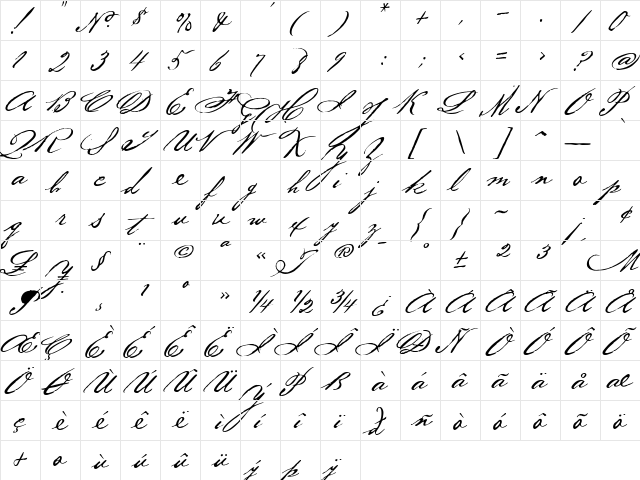 ! " № $ % & ' ( ) * + , - . / 0
1 2 3 4 5 6 7 8 9 : ; < = > ? @
A B C D E F G H I J K L M N O P
Q R S T U V W X Y Z [ \ ] ^ —
a b c d e f g h i j k l m n o p
q r s t u v w x y z { | } ~ ¢
£ ¥ § ¨ © ª « ® ¯ ° ± 2 3
¶ 1 º » 1/4 1/2 3/4 ¿ À Á Â Ã Ä Å
Æ Ç È É Ê Ë Ì Í Î Ï Ð Ñ Ò Ó Ô Õ
Ö Ø Ù Ú Û Ü Ý Þ ß à á â ã ä å æ
ç è é ê ë ì í î ï ñ ò ó ô õ ö
ù ú û ü ý þ ÿ